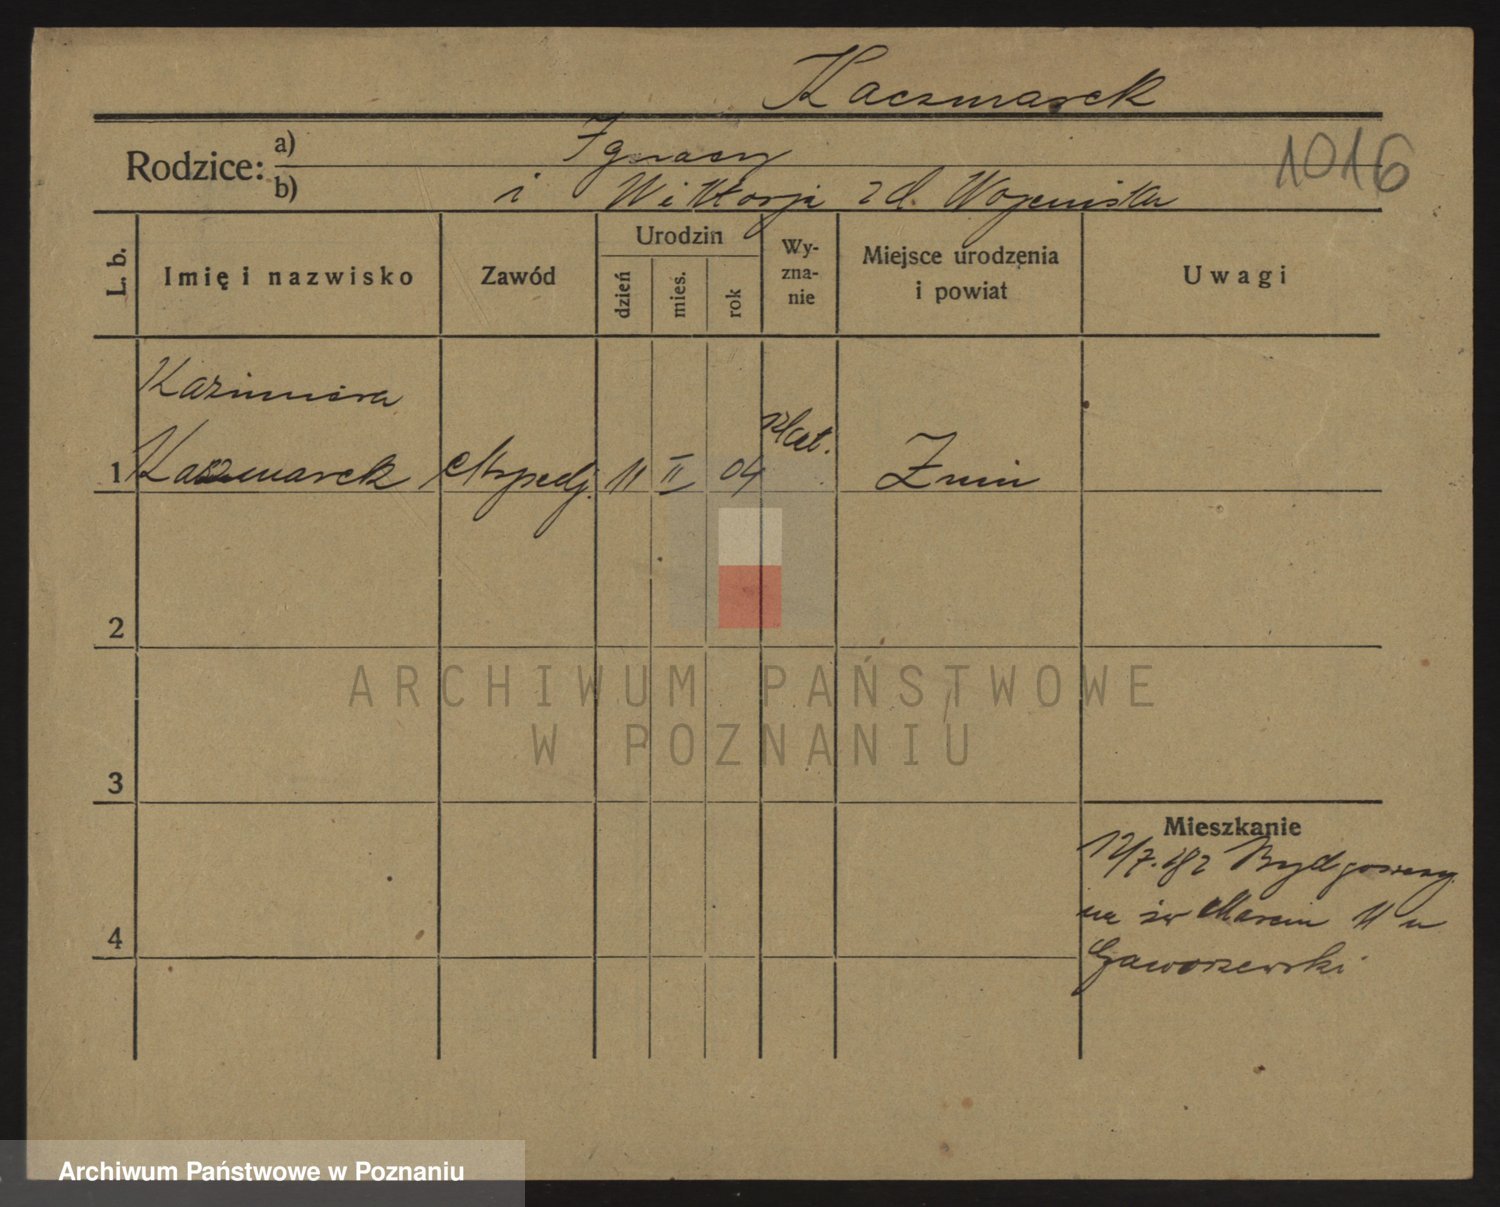 Kaczmarek
1016
Rodzice: a) Ignacy
b) i Wiktorja zd.
L. b.
Imię i nazwisko
Zawód
Urodzin
dzień
mies.
rok
Wy-
zna-
nie
Miejsce urodzenia
i powiat
Uwagi
Kazimiera
1 Kaczmarek Ekspedj. 11 II 04 Kat. Żnin
2
3
4
Mieszkanie
12/7. Bydgoszczy
na św Marcin 11 u
Gaworzewski
ARCHIWUM PAŃSTWOWE
W POZNANIU
Archiwum Państwowe w Poznaniu